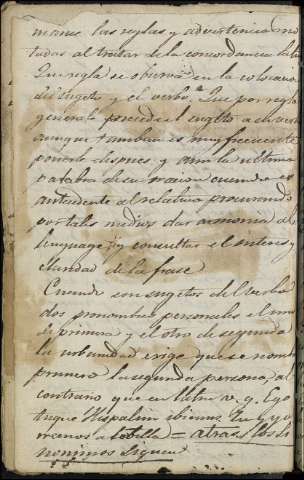 manse las reglas y advertencias no
tadas al tratar de la concordancia latin
Que regla se observa en la colocacio
del sugeto y el verbo? Que por regla
general precede el sugeto a su verbo
aunque tambien es muy frecuente
ponerlo despues y aun la ultima
palabra de su oracion cuando es
antecedente al relativo procurando
por tales medios dar armonia al
lenguage y consultar el interes y
claridad de la frase
Cuando son sugetos del verbo
dos pronombres personales el uno
de primera y el otro de segunda
la urbanidad exige que se nombre
primero la segunda persona, al
contrario que en latin v. g. Ego
tuque Hispalim ibimus. Tu y yo
iremos a Sevilla = atras los si
nonimos siguen